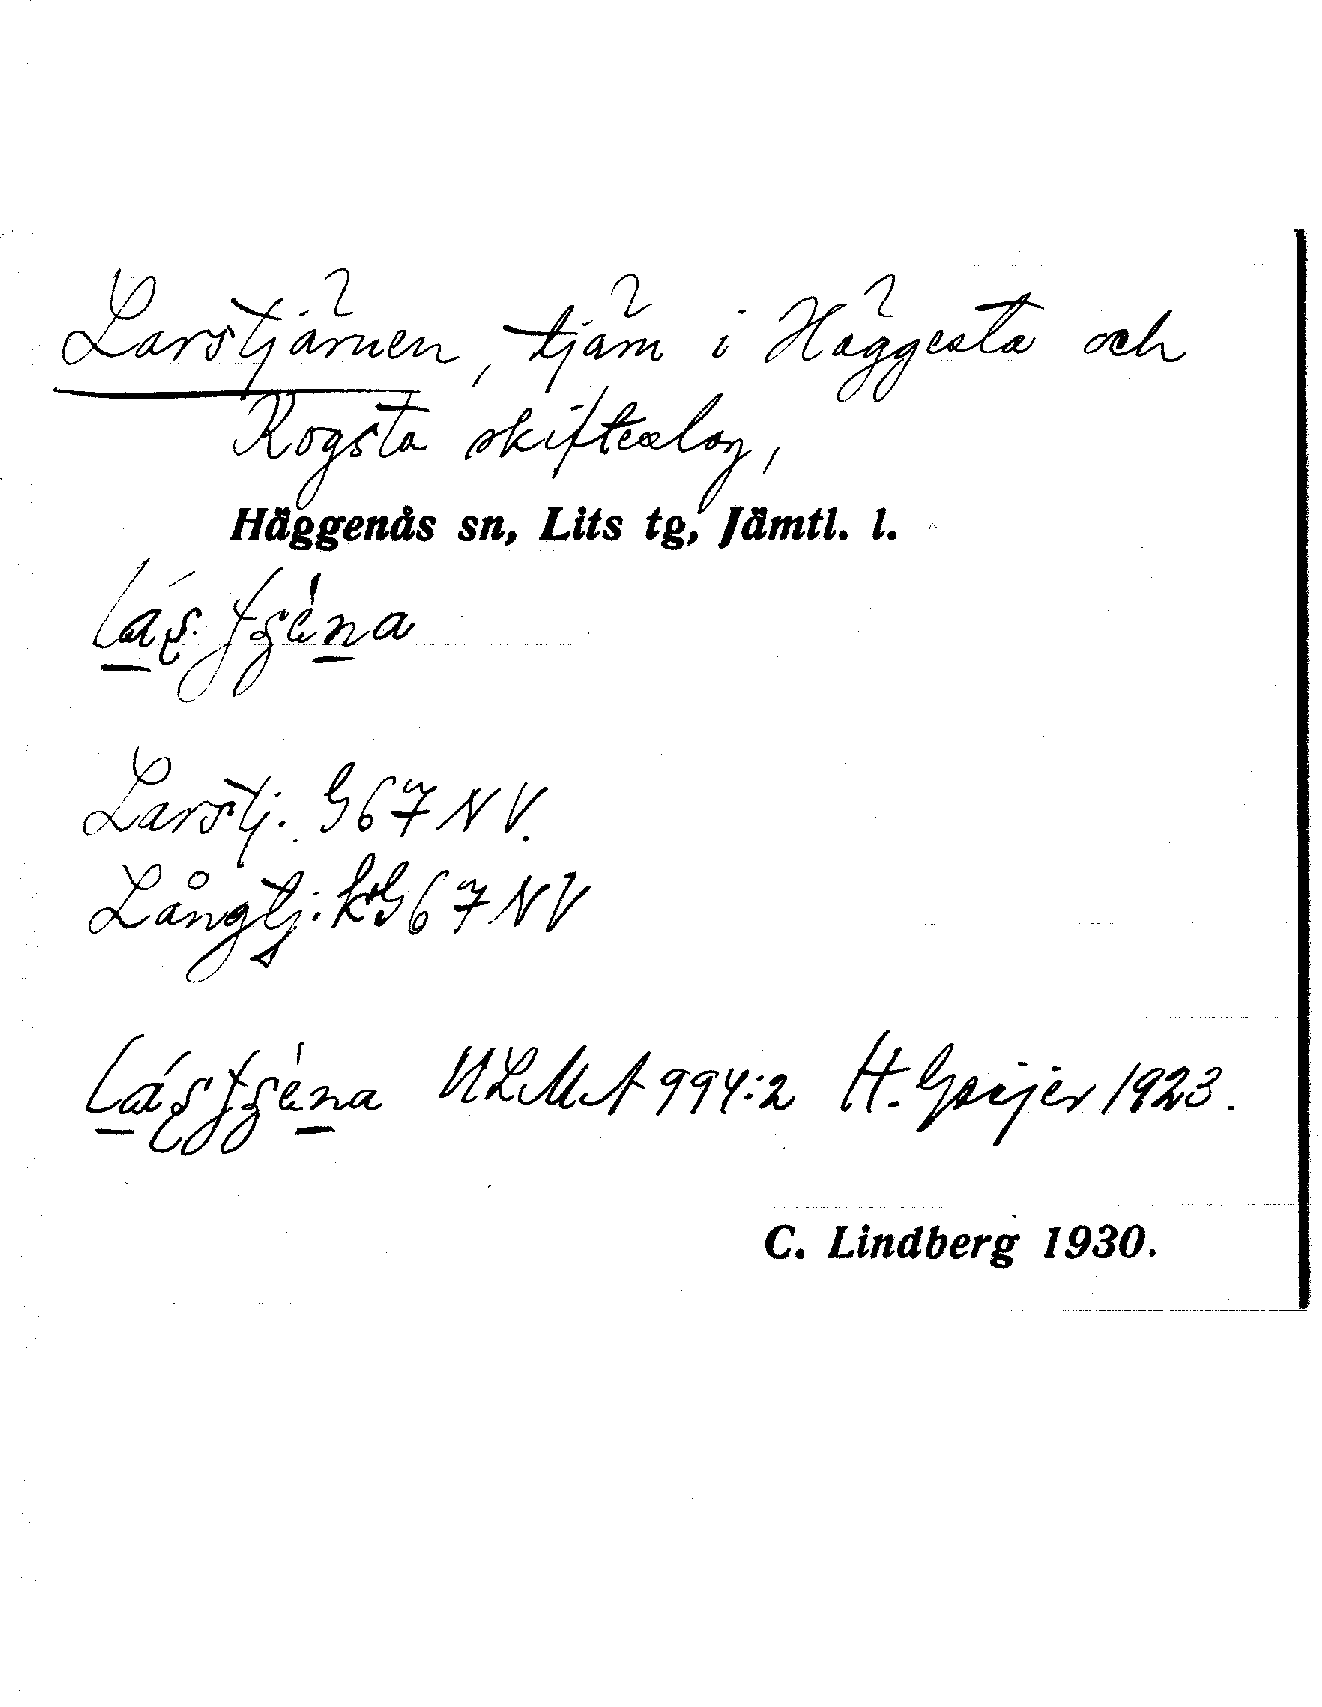 Larstjärnen, tjärn i Häggesta och
Kogsta skifteslag,
Häggenås sn, Lits tg, Jämtl. l.
Larstj. G67NV.
Långtj. kG67NV
ULMA 994:2 H. Geijer 1923.
C. Lindberg 1930.